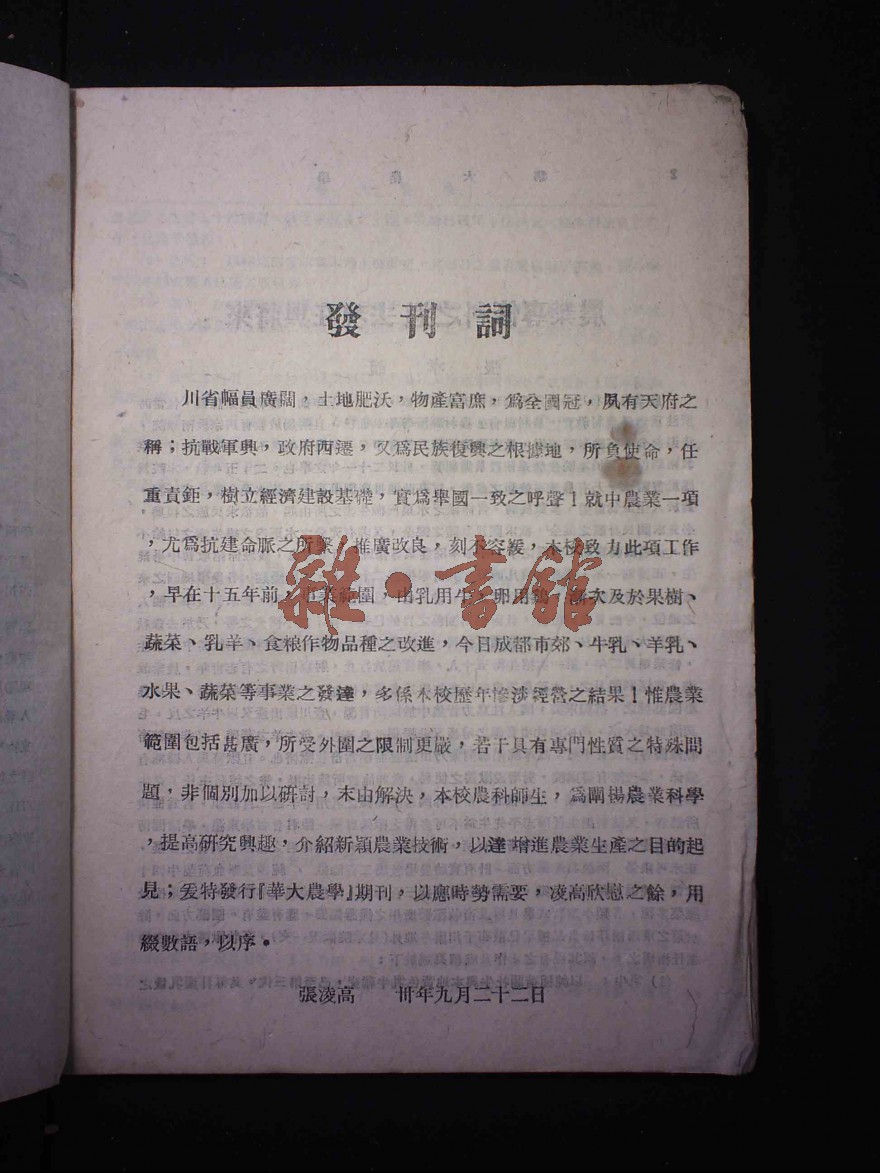 發刊詞
川省幅員廣闊，土地肥沃，物產富庶，爲全國冠，夙有天府之
稱；抗戰軍興，政府西遷，又爲民族復興之根據地，所負使命，任
重責鉅，樹立經濟建設基礎，實爲舉國一致之呼聲！就中農業一項
，尤爲抗建命脈之所繫，推廣改良，刻不容緩，本校致力此項工作
，早在十五年前，事業範圍，由乳用牛，卵用鷄，漸次及於果樹、
蔬菜、乳羊、食粮作物品種之改進，今日成都市郊、牛乳、羊乳、
水果、蔬菜等事業之發達，多係本校歷年慘涉經營之結果！惟農業
範圍包括甚廣，所受外圍之限制更嚴，若干具有專門性質之特殊問
題，非個別加以硏討，末由解決，本校農科師生，爲闡揚農業科學
，提高研究興趣，介紹新穎農業技術，以達增進農業生產之目的起
見；爰特發行『華大農學』期刊，以應時勢需要，凌高欣慰之餘，用
綴數語，以序。
張凌高　卅年九月二十二日
雜·書館